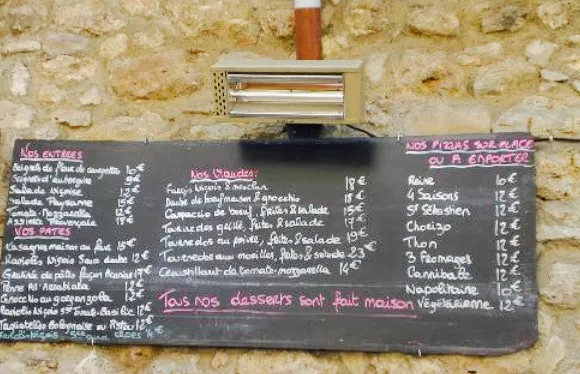 NOS ENTREES
Beignets de fleur de courgettes 10€
d'aubergine 9€
Salade Niçoise 13€
Salade Paysanne 15€
Tomate-Mozzarella 12€
Assiette Provençale 18€
VOS PATES
Lasagnes maison au four 15€
Raviolis Niçois Sauce daube 12€
Gratiné de pâtes façon 17€
Penne All'Arrabiata 12€
Gnocchi au gorgonzola 12€
Raviolis Niçois Sce Tomate-Basilic 12€
Tagliatelles bolonnaise ou Pistou 12€
NOS Viandes:
Farcis Niçois & mesclun 18€
Daube de boeuf maison & gnocchis 18€
Carpaccio de boeuf, frites & salade 15€
Tournedos grillé, frites & salade 17€
Tournedos au poivre, frites & salade 19€
Tournedos aux morilles, frites & salade 23€
Croustillant de tomate-mozzarella 14€
Tous nos desserts sont fait maison
NOS PIZZAS SUR PLACE
OU A EMPORTER
Reine 10€
4 Saisons 12€
St Sébastien 12€
Chorizo 12€
Thon 12€
3 Fromages 12€
Cannibale 12€
Napolitaine 10€
Végétarienne 12€